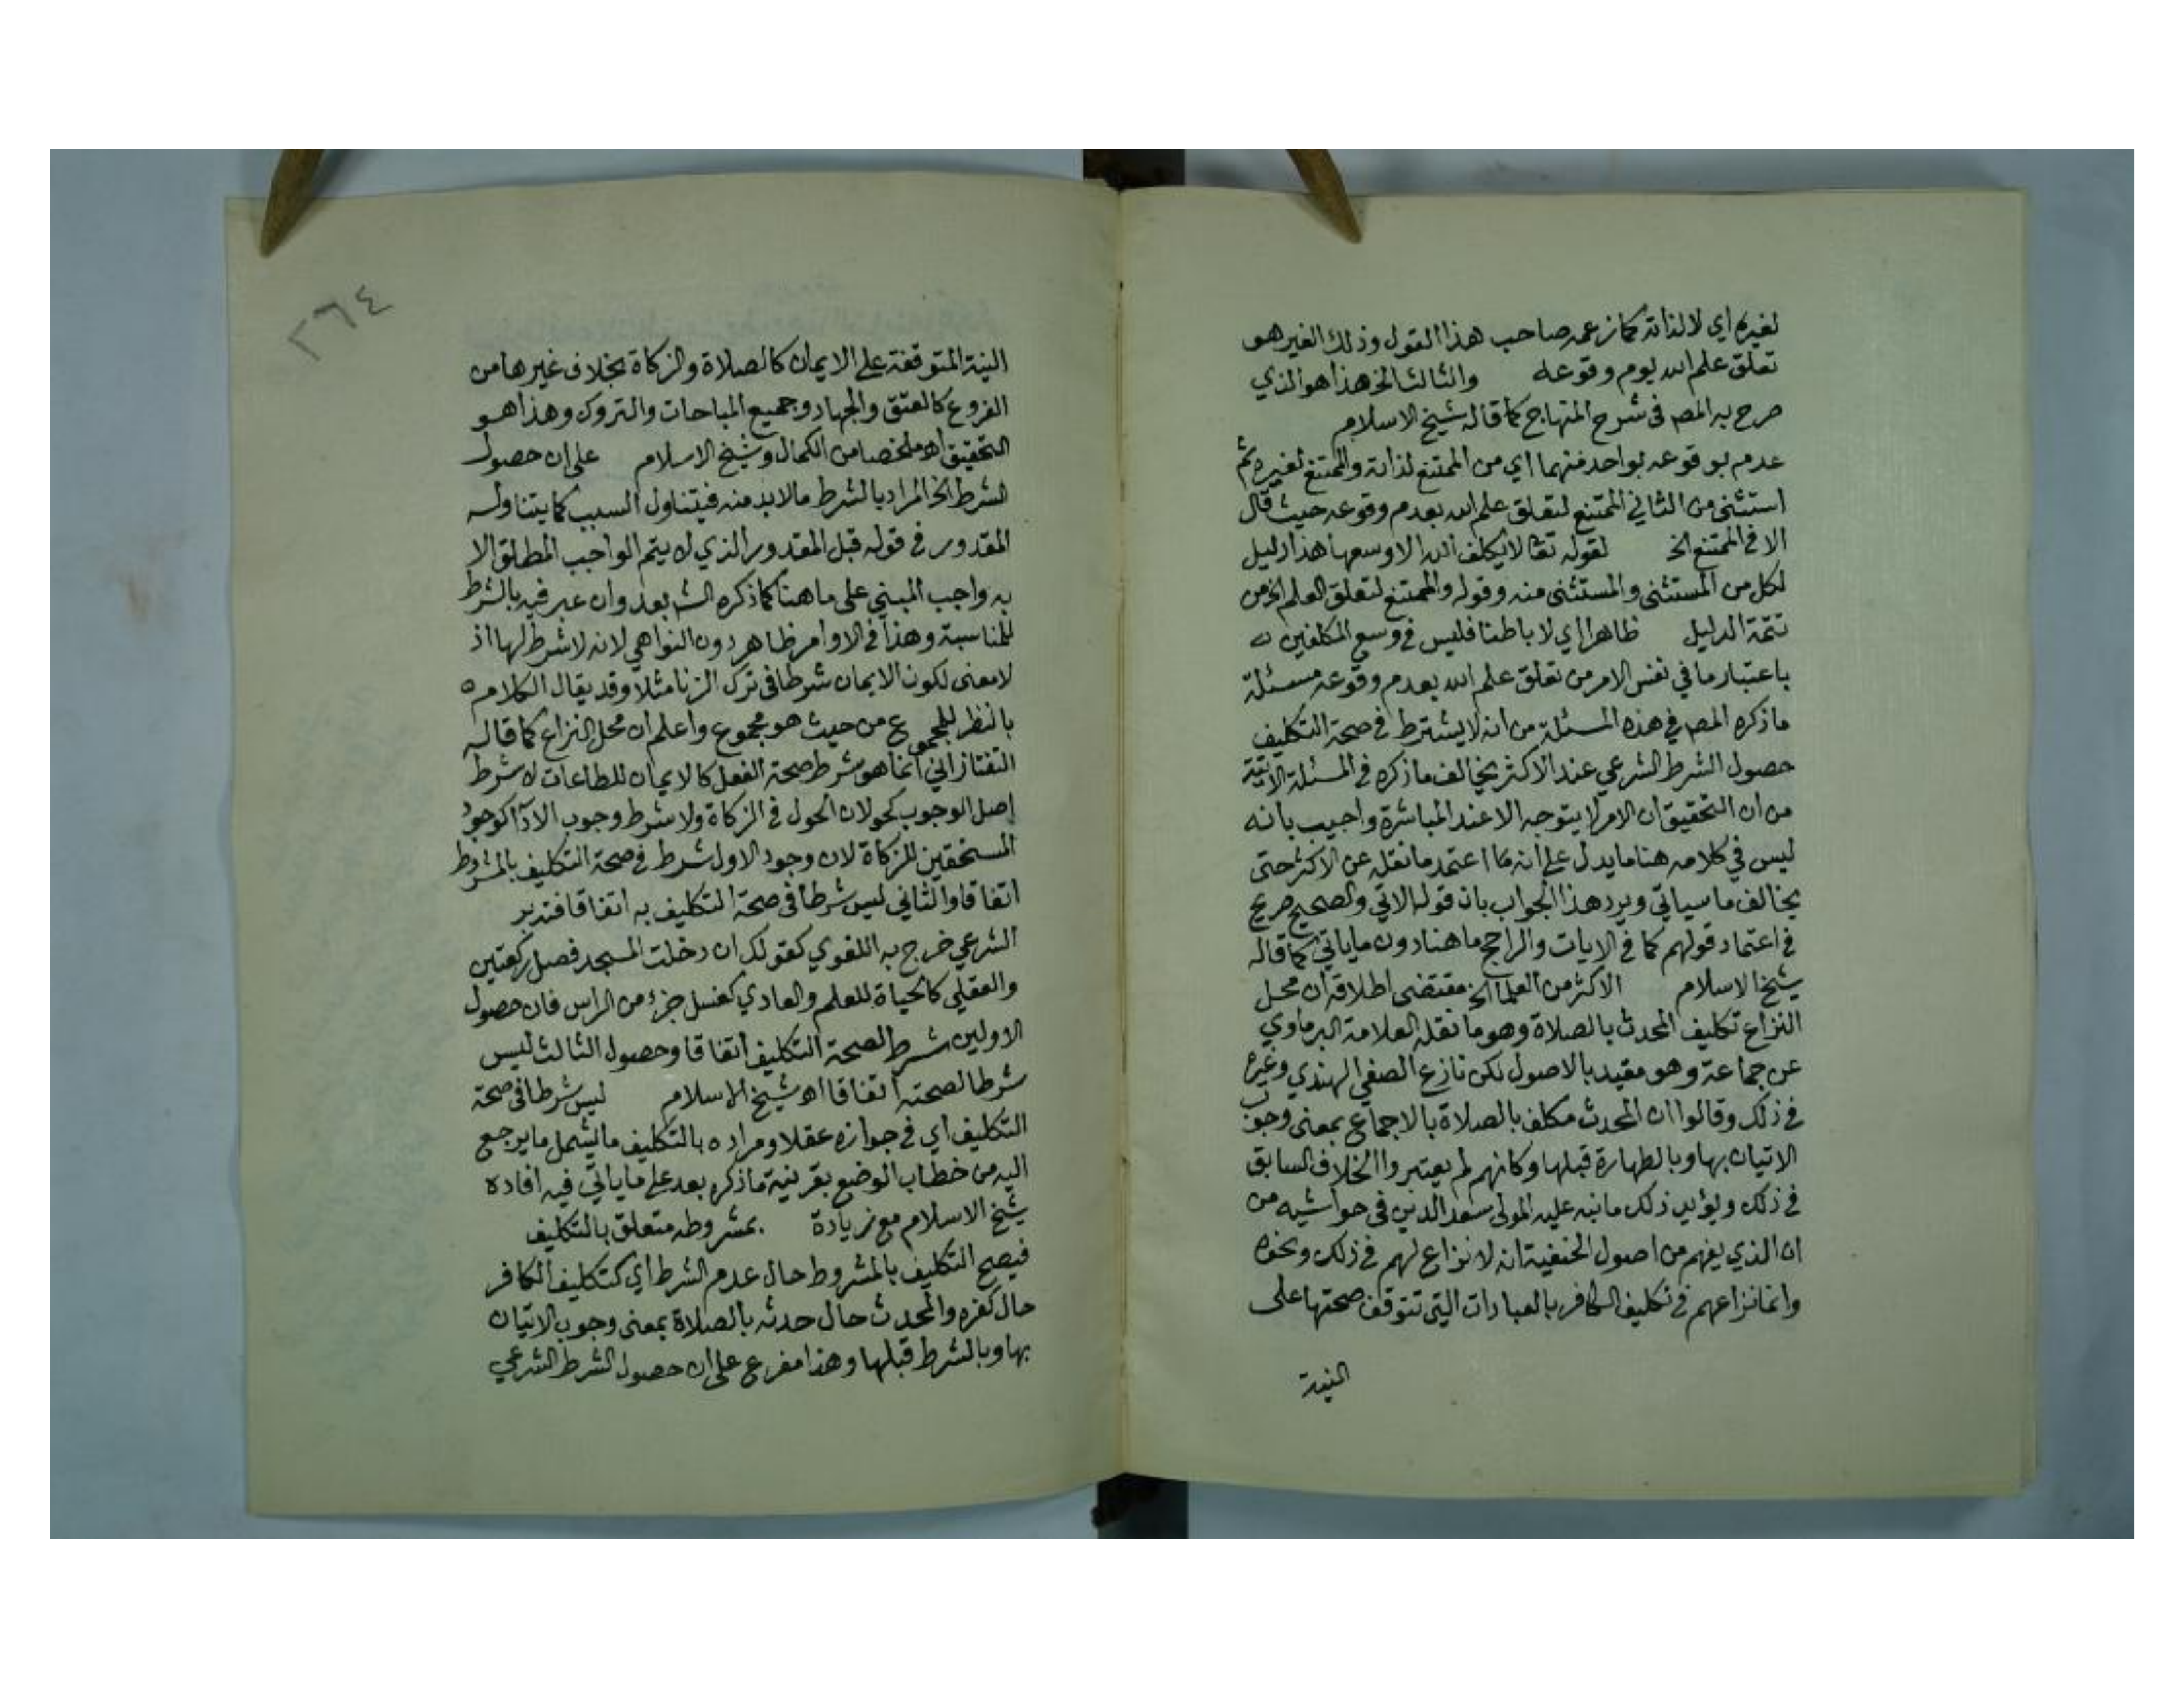 لغيره اي لا لذاته كما زعمه صاحب هذا القول وذلك الغير هو
تعلق علم الله يوم وقوعه والثالث الخ هذا هو الذي
صرح به المص فى شرح المنهاج كما قاله شيخ الاسلام
عدم بوقوعه بواحد منهما اي من الممتنع لذاته والممتنع لغيره ثم
استثنى من الثاني الممتنع لتعلق علم الله بعدم وقوعه حيث قال
الا في الممتنع الخ لقوله تعا لا يكلف الله الا وسعها هذا دليل
لكل من المستثنى والمستثنى منه وقوله والممتنع لتعلق العلم الخ من
تتمة الدليل ظاهرا اي لا باطنا فليس في وسع المكلفين
باعتبار ما في نفس الامر من تعلق علم الله بعدم وقوعه مسئلة
ما ذكره المص في هذه المسئلة من انه لا يشترط في صحة التكليف
حصول الشرط الشرعي عند الاكثر يخالف ما ذكره في المسئلة الاتية
من ان التحقيق ان الامر لا يتوجه الا عند المباشرة واجيب بانه
ليس في كلامه هنا ما يدل على انه اعتمد ما نقله عن الاكثر حتى
يخالف ما سياتي ويرد هذا الجواب بان قوله الاتي والصحيح صريح
في اعتماد قولهم كما في الايات والراجح ما هنا دون ما ياتي كما قاله
شيخ الاسلام الاكثر من العلما الخ مقتضى اطلاقه ان محل
النزاع تكليف المحدث بالصلاة وهو ما نقله العلامة البرماوي
عن جماعة وهو مقيد بالاصول لكن نازع الصفي الهندي وغيره
في ذلك وقالوا ان المحدث مكلف بالصلاة بالاجماع بمعنى وجوب
الاتيان بها وبالطهارة قبلها وكانهم لم يعتبروا الخلاف السابق
في ذلك ويؤيد ذلك ما نبه عليه المولى سعد الدين فى حواشيه من
ان الذي يفهم من اصول الحنفية انه لا نزاع لهم في ذلك ونحوه
وانما نزاعهم في تكليف الكافر بالعبادات التي تتوقف صحتها على
النية
٢٦٤
النية المتوقفة على الايمان كالصلاة والزكاة بخلاف غيرها من
الفروع كالعتق والجهاد وجميع المباحات والتروك وهذا هو
التحقيق اه ملخصا من الكمال وشيخ الاسلام على ان حصول
الشرط الخ المراد بالشرط ما لا بد منه فيتناول السبب كما يتناوله
المقدور في قوله قبل المقدور الذي لا يتم الواجب المطلق الا
به واجب المبني على ما هنا كما ذكره الش بعد وان عبر فيه بالشرط
للمناسبة وهذا في الاوامر ظاهر دون النواهي لانه لا شرط لها اذ
لا معنى لكون الايمان شرطا في ترك الزنا مثلا وقد يقال الكلام
بالنظر للمجموع من حيث هو مجموع واعلم ان محل النزاع كما قاله
التفتازاني انما هو شرط صحة الفعل كالايمان للطاعات لا شرط
اصل الوجوب كحولان الحول في الزكاة ولا شرط وجوب الادآ كوجود
المستحقين للزكاة لان وجود الاول شرط في صحة التكليف بالمشروط
اتفاقا والثاني ليس شرطا فى صحة التكليف به اتفاقا فتدبر
الشرعي خرج به اللغوي كقولك ان دخلت المسجد فصل ركعتين
والعقلي كالحياة للعلم والعادي كغسل جزء من الراس فان حصول
الاولين شرط لصحة التكليف اتفاقا وحصول الثالث ليس
شرطا لصحته اتفاقا اه شيخ الاسلام ليس شرطا فى صحة
التكليف اي في جوازه عقلا ومراده بالتكليف ما يشمل ما يرجع
اليه من خطاب الوضع بقرينة ما ذكره بعد على ما ياتي فيه افاده
شيخ الاسلام مع زيادة بمشروطه متعلق بالتكليف
فيصح التكليف بالمشروط حال عدم الشرط اي كتكليف الكافر
حال كفره والمحدث حال حدثه بالصلاة بمعنى وجوب الاتيان
بها وبالشرط قبلها وهذا مفرع على ان حصول الشرط الشرعي